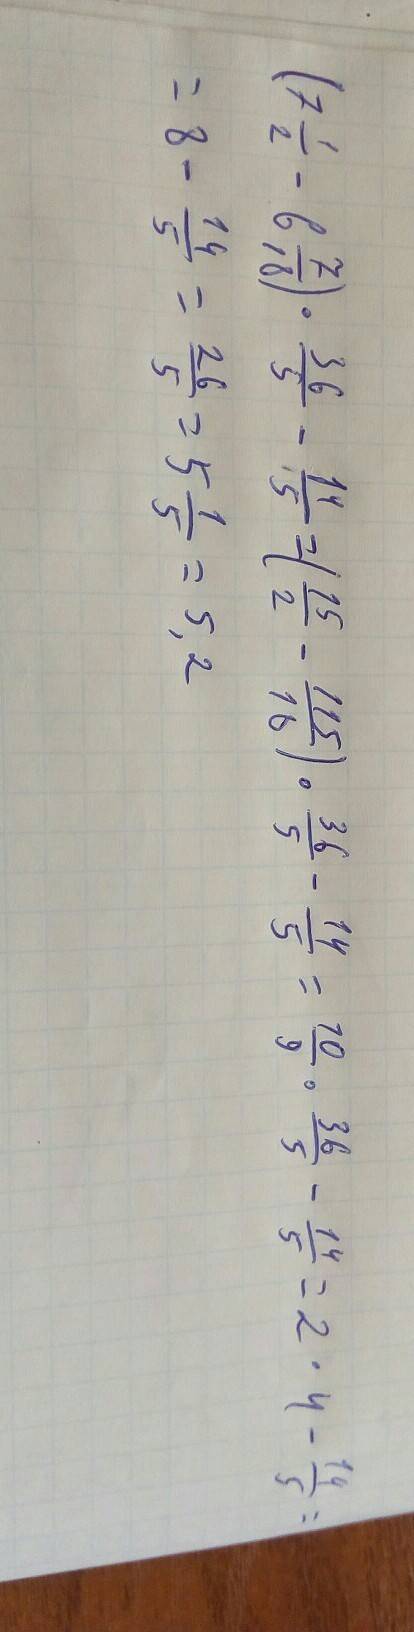 (7 1/2 - 6 7/18) · 36/5 - 14/5 = (15/2 - 115/18) · 36/5 - 14/5 = 10/9 · 36/5 - 14/5 = 2 · 4 - 14/5 =
= 8 - 14/5 = 26/5 = 5 1/5 = 5,2